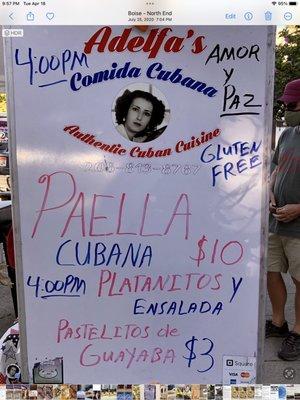 9:57 PM Tue Apr 18
95%
Boise - North End
July 25, 2020 7:04 PM
Edit
HDR
Adelfa's
4:00PM
AMOR
y
PAZ
Comida Cubana
Authentic Cuban Cuisine
GLUTEN
FREE
PAELLA
CUBANA $10
4:00PM PLATANITOS y
ENSALADA
PASTELITOS de
GUAYABA $3
Square
VISA